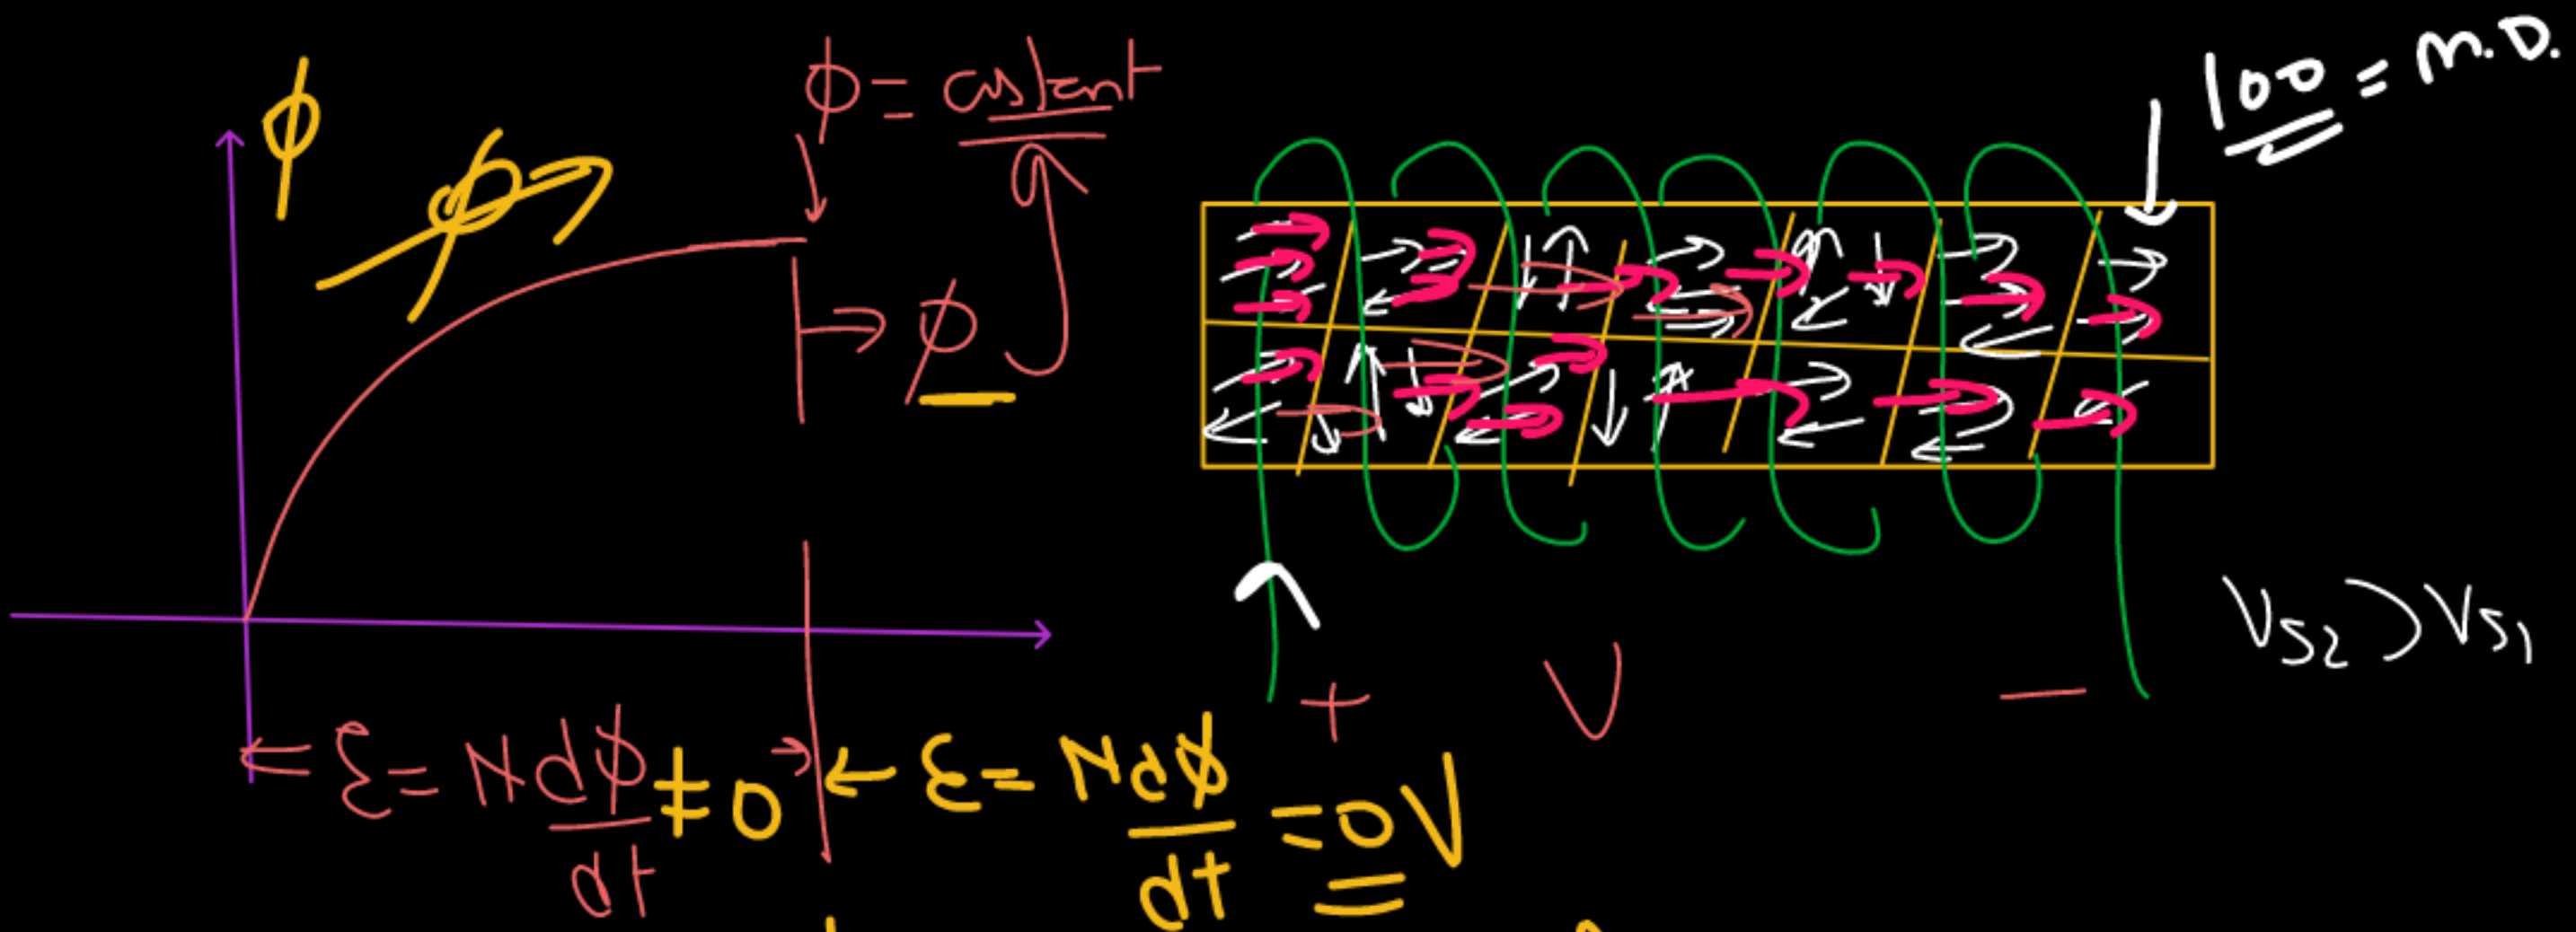 ϕ
ϕ
ϕ = constant
ϕ
100 = M.D.
+ V −
VS2 > VS1
ε = N dϕ/dt ≠ 0
ε = N dϕ/dt = 0 V